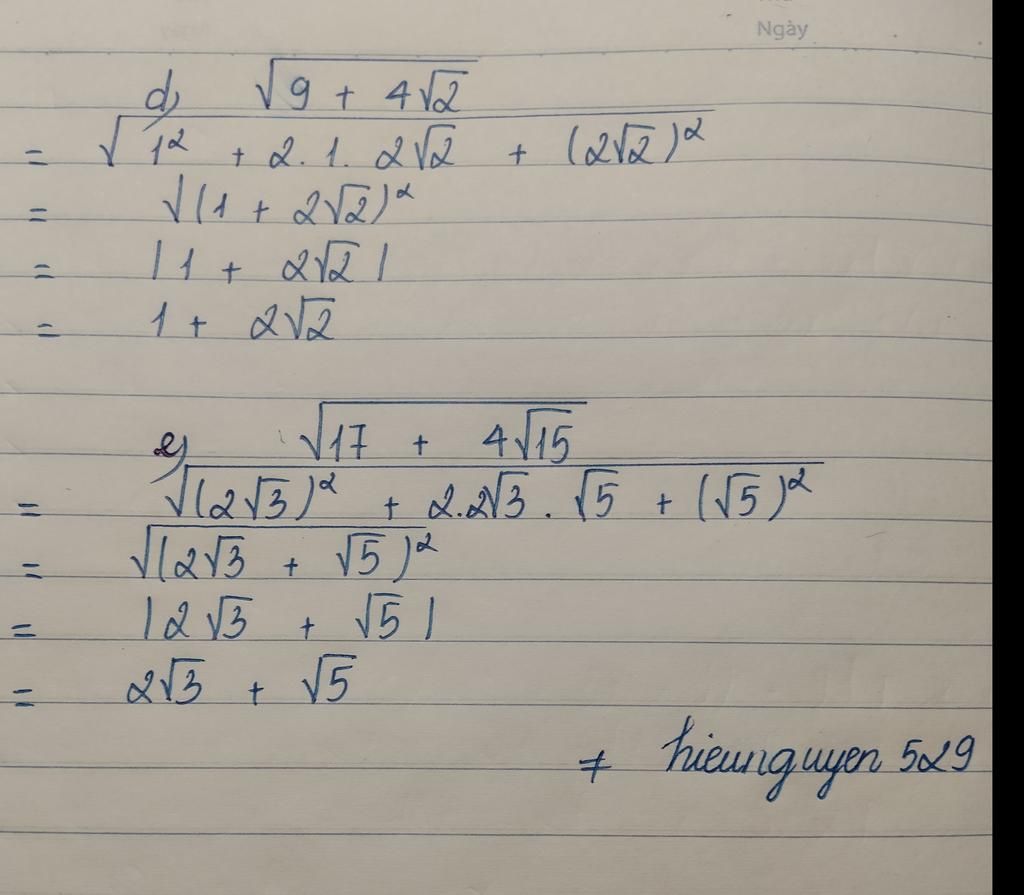 Ngày
d) √(9 + 4√2)
= √(1² + 2.1. 2√2 + (2√2)²)
= √(1 + 2√2)²
= |1 + 2√2|
= 1 + 2√2
e) √(17 + 4√15)
= √((2√3)² + 2.2√3 . √5 + (√5)²)
= √((2√3 + √5)²)
= |2√3 + √5|
= 2√3 + √5
+ hieunguyen 529